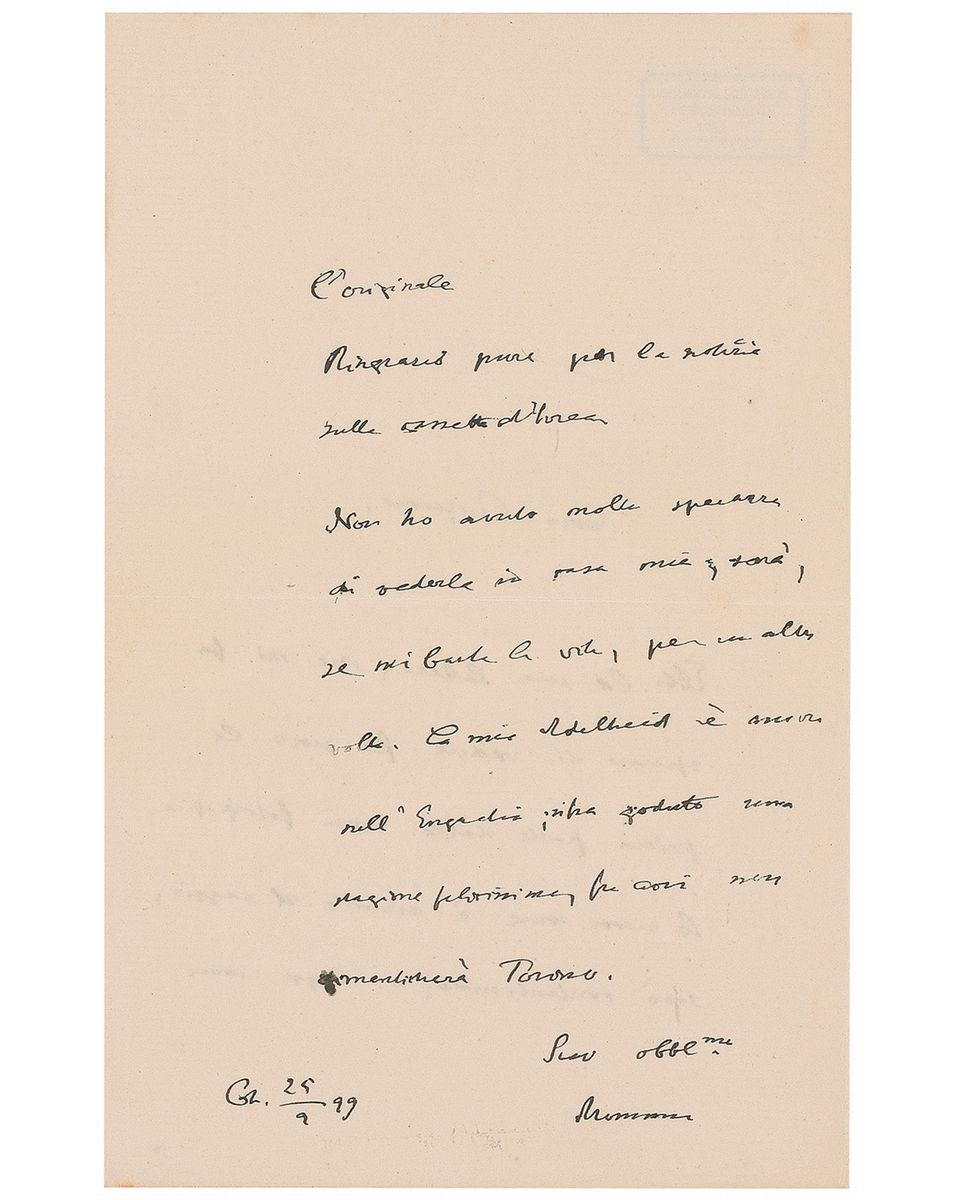 l'originale
Ringrazio pure per la notizia
sulla cassetta d'Ivrea
Non ho avuto molta speranza
di vederla in casa mia; sarà,
se mi basta la vita, per un altra
volta. La mia Adelheid è ancora
nell' Engadin; ha goduto una
stagione felicissima, fra così non
dimenticherà Torino.
Suo obbl.me
Mommsen
Ch. 25/9 99